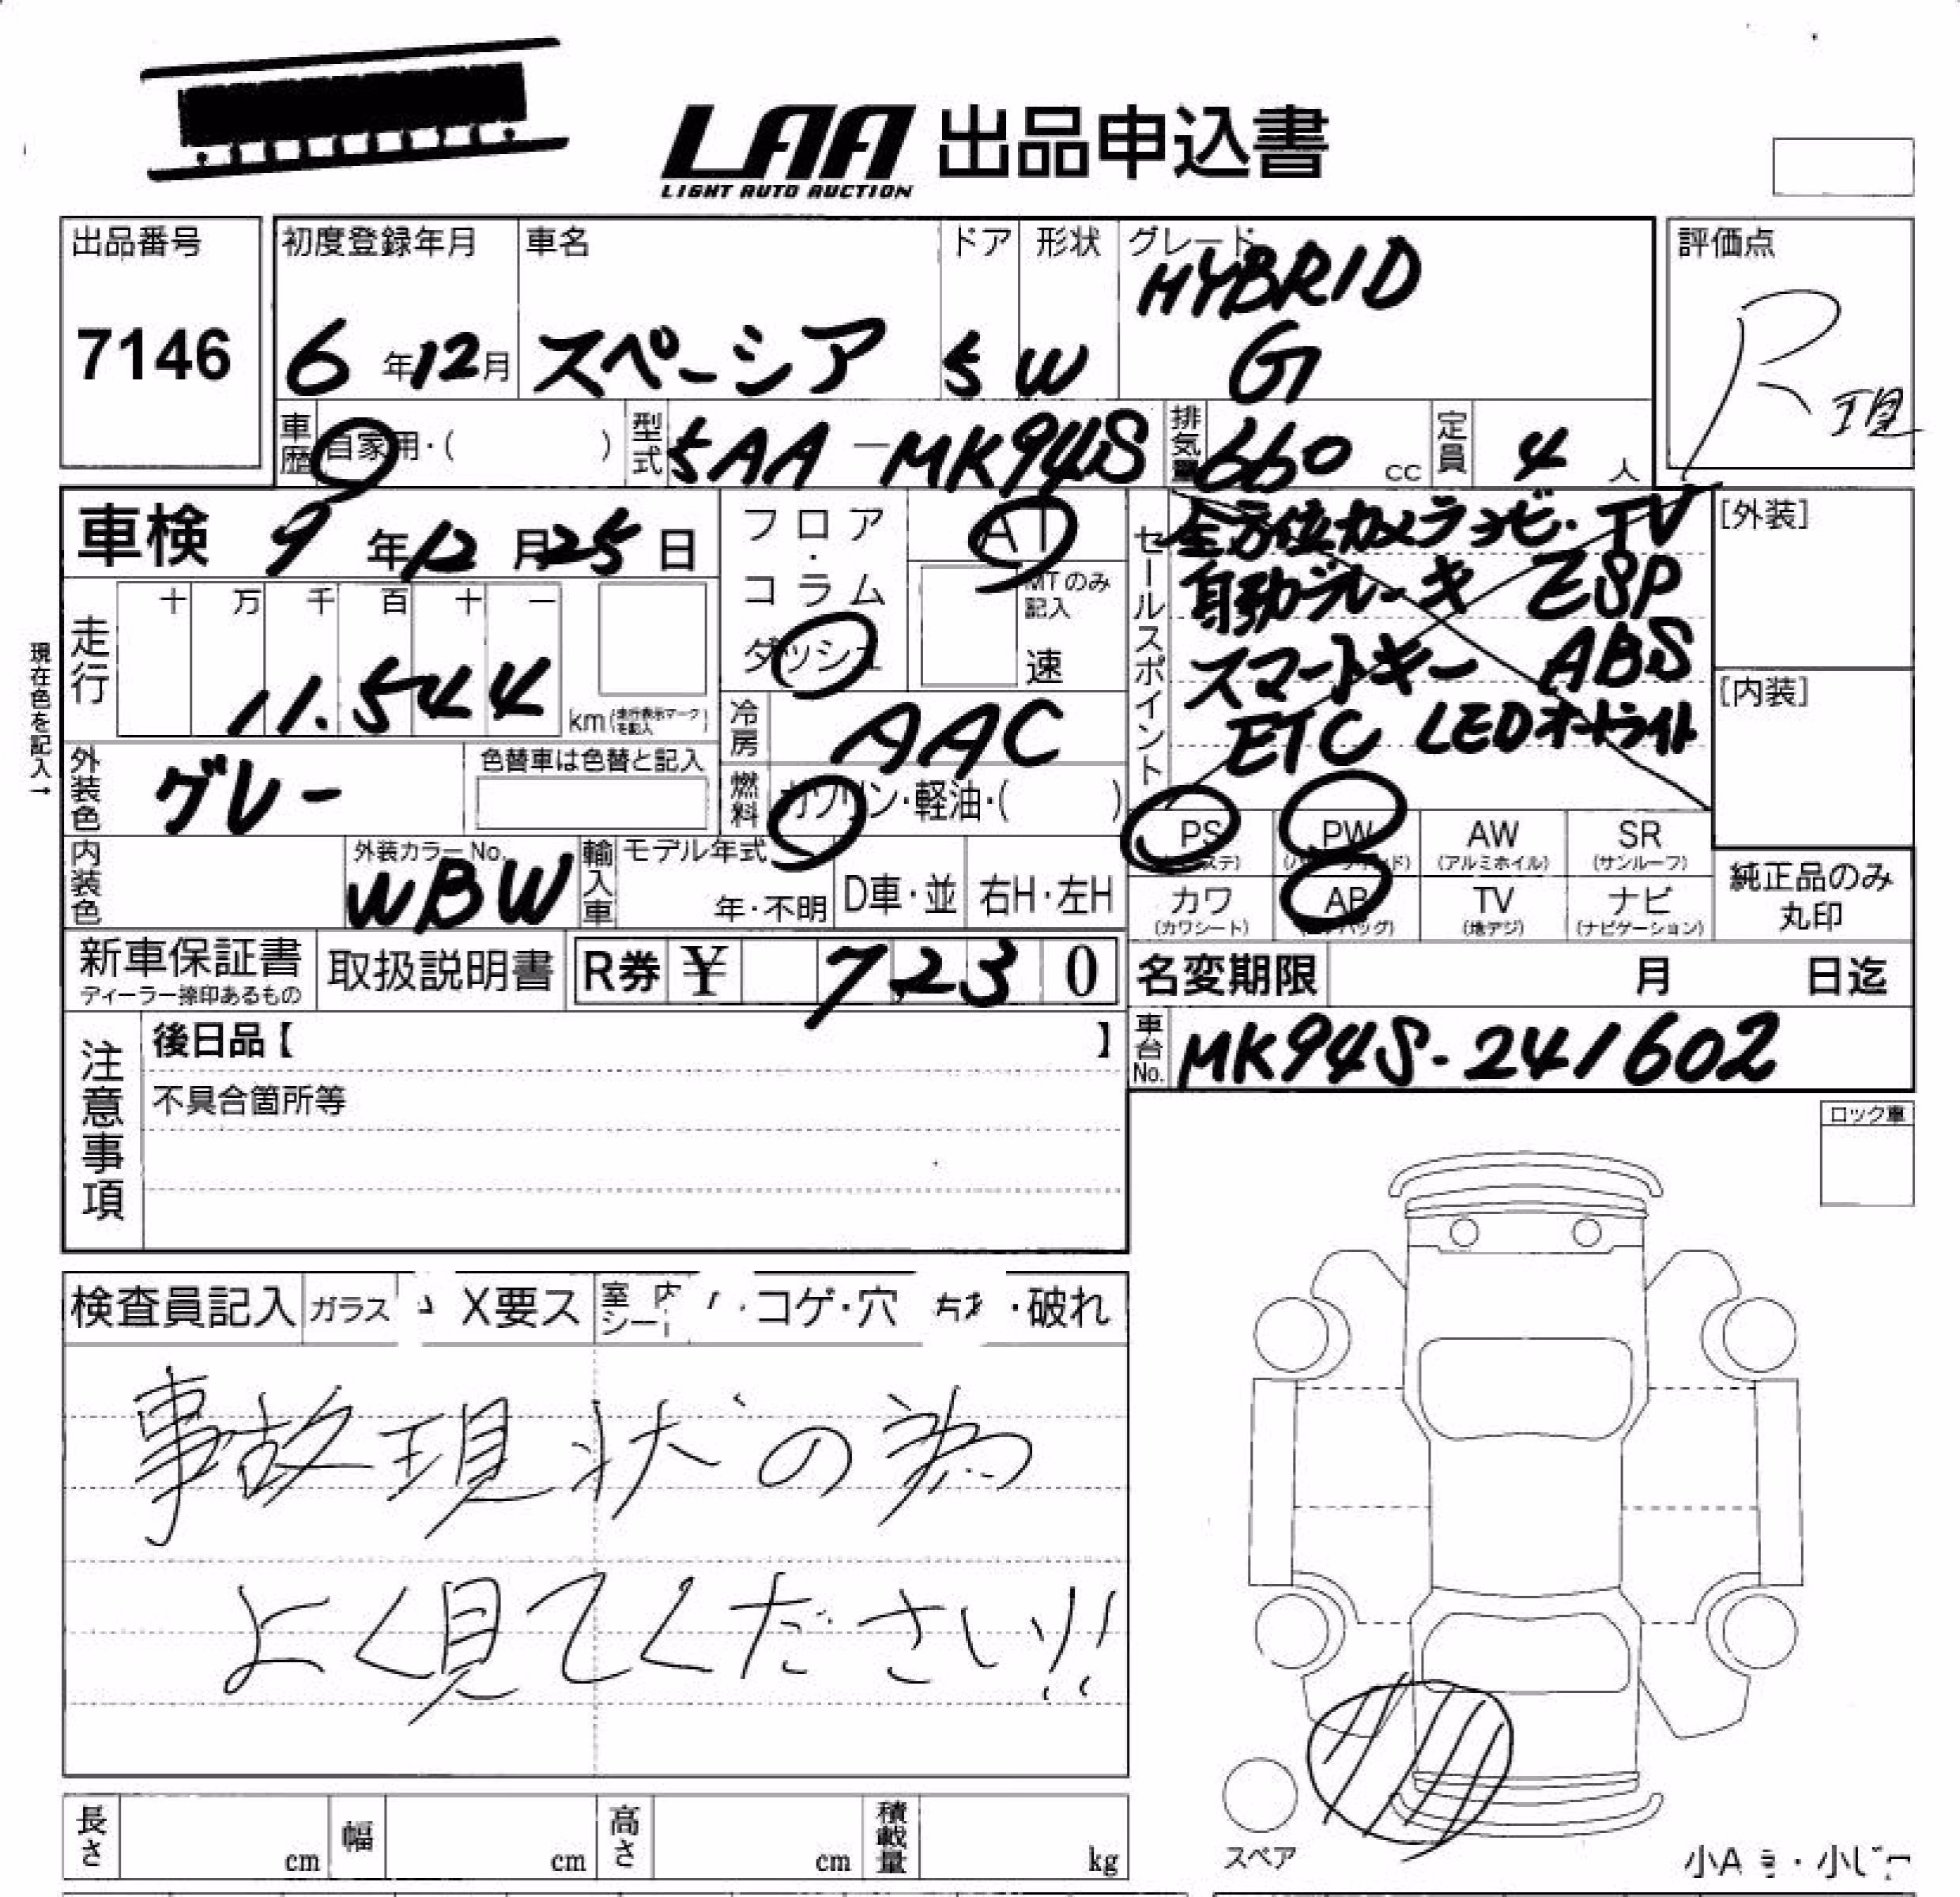 LAA 出品申込書
LIGHT AUTO AUCTION
出品番号
7146
初度登録年月
6年12月
車名
スペーシア
ドア
5
形状
W
グレード
HYBRID
G
評価点
R現
車歴
自家用・( )
型式
5AA-MK94S
排気量
660 cc
定員
4 人
車検 9年12月25日
フロア・コラム
ダッシュ
AT
MTのみ記入
速
セールスポイント
全方位カメラ ナビ・TV
自動ブレーキ ESP
スマートキー ABS
ETC LEDオートライト
[外装]
[内装]
現在色を記入→
走行
十 万 千 百 十 一
11.544
km (走行表示マークを記入)
冷房
AAC
外装色
グレー
色替車は色替と記入
燃料
ガソリン・軽油・( )
内装色
外装カラーNo.
WBW
輸入車
モデル年式
年・不明
D車・並
右H・左H
PS
PW
AW
(アルミホイル)
SR
(サンルーフ)
カワ
(カワシート)
AB
TV
(地デジ)
ナビ
(ナビゲーション)
純正品のみ
丸印
新車保証書
ディーラー捺印あるもの
取扱説明書
R券 ¥ 7,230
名変期限 月 日迄
車台No.
MK94S-241602
注意事項
後日品【 】
不具合箇所等
ロック車
検査員記入
ガラス
X要ス
室内
シート
コゲ・穴
・破れ
事故現状の為
よく見てください!!
スペア
長さ cm
幅 cm
高さ cm
積載量 kg